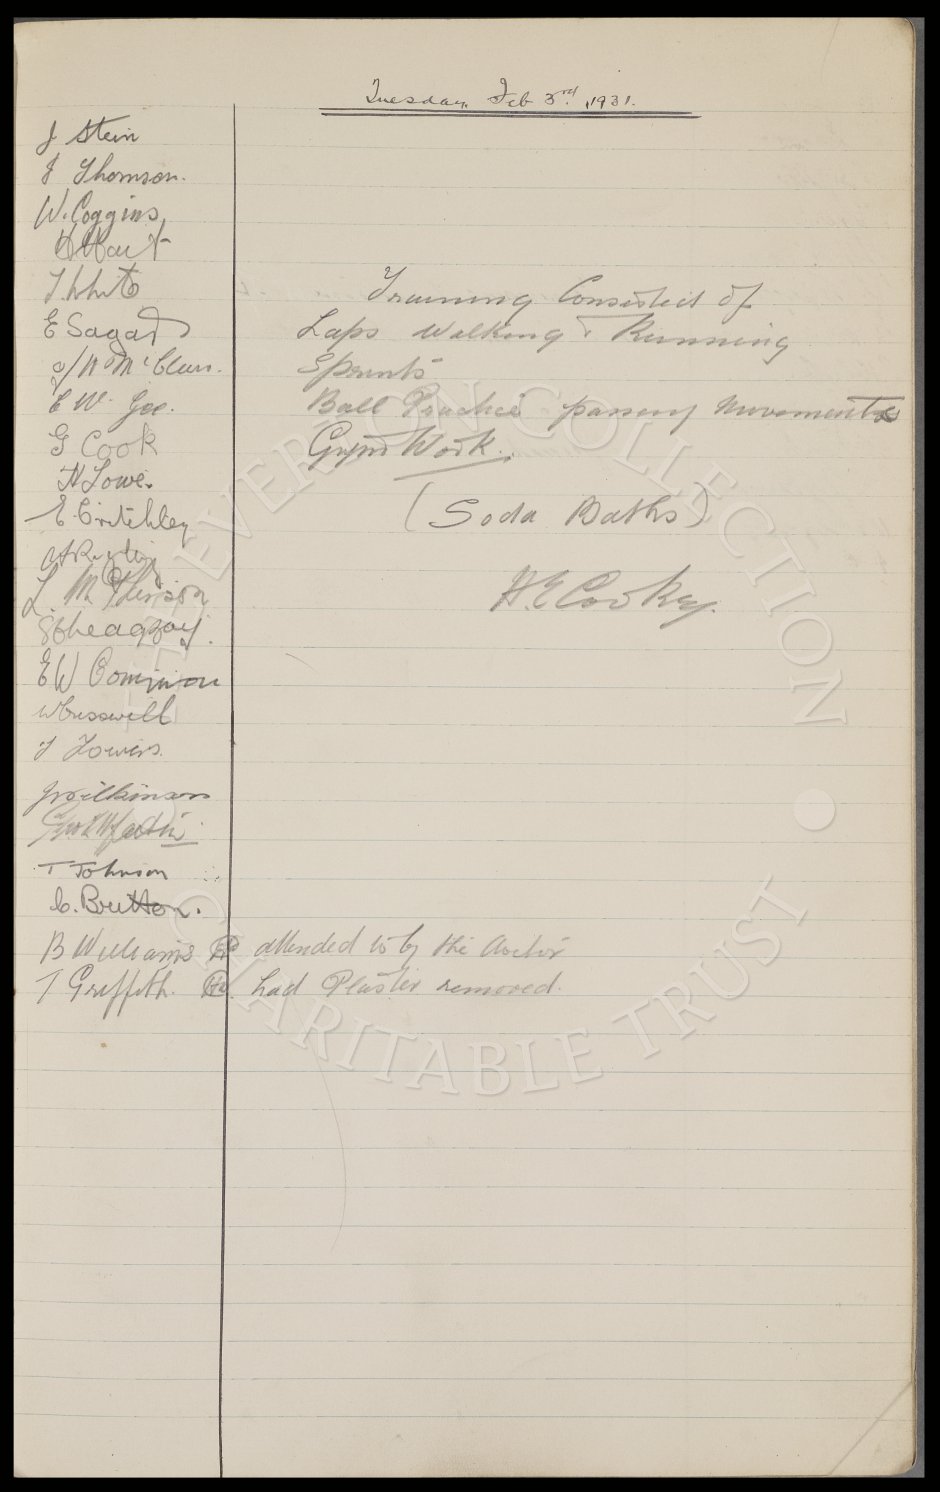 Tuesday, Feb 3rd, 1931.
J Stein
J Thomson.
W. Coggins,
T. White
E Sagar
Training Consisted of
Laps Walking & Running
Sprints
Ball Practice passing movements
Gym Work.
E W. Gee.
G Cook
H Lowe.
E. Critchley
(Soda Baths)
L. McPherson
H. E. Cooke
E W Common
W Cresswell
T Towers.
J Wilkinson
Geo E Martin
T Johnson
C. Britton.
B Williams attended to by the Doctor
T Griffith. had Plaster removed.
THE EVERTON COLLECTION
CHARITABLE TRUST